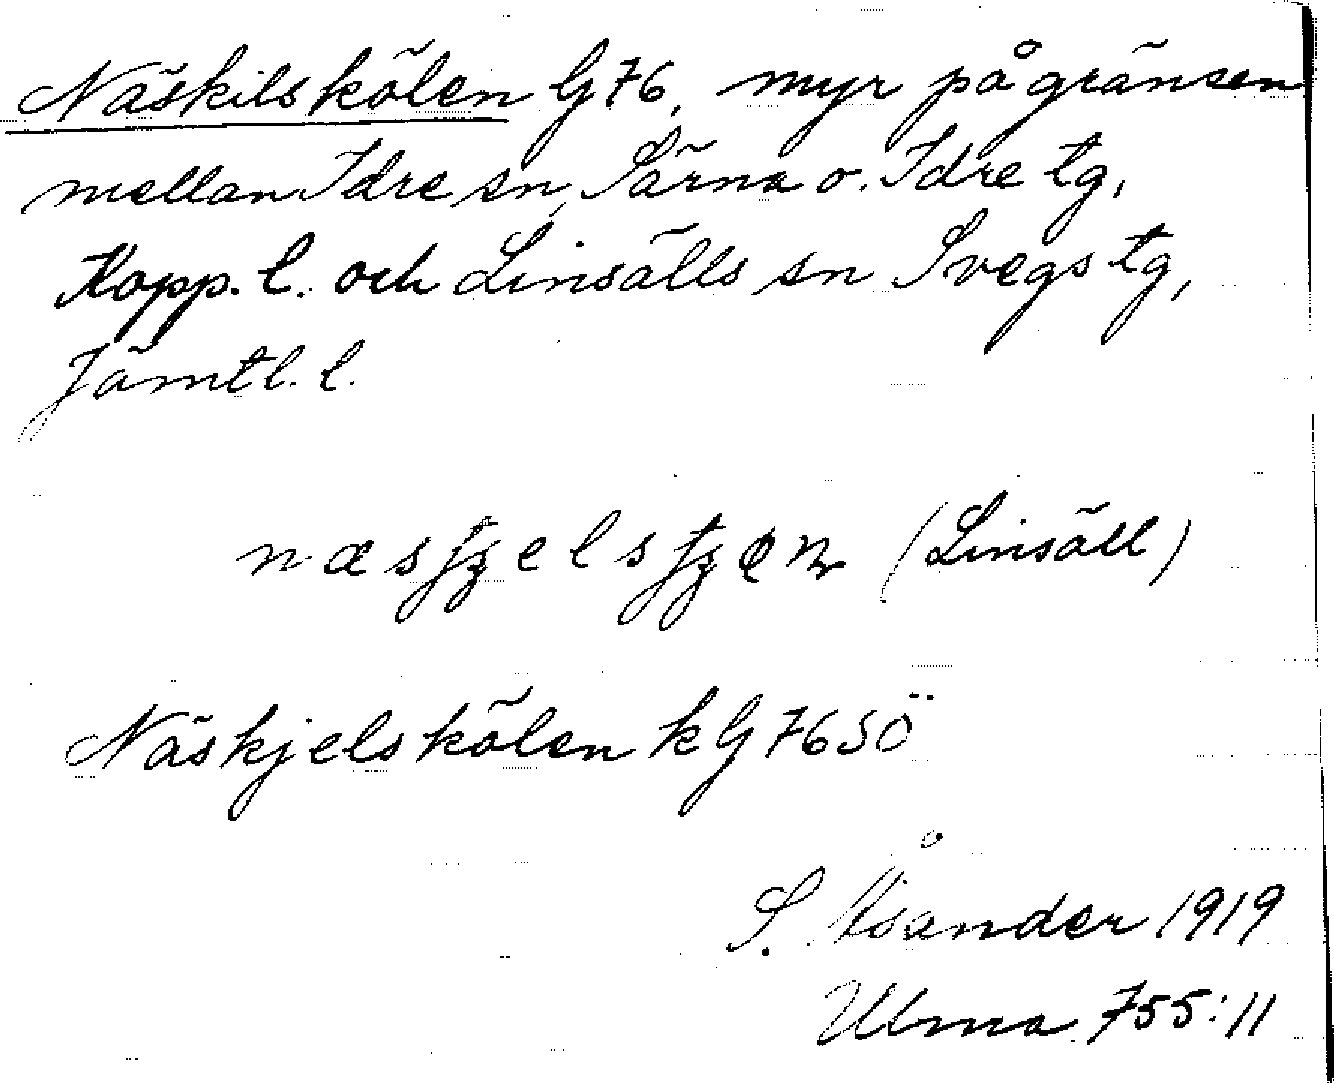 Näskilskölen G76, myr på gränsen
mellan Idre sn, Särna o. Idre tg,
Kopp. l. och Linsälls sn Svegs tg,
Jämtl. l.
(Linsäll)
Näskjelskölen k G 76 SÖ
S. Åsander 1919
Ulma 755:11